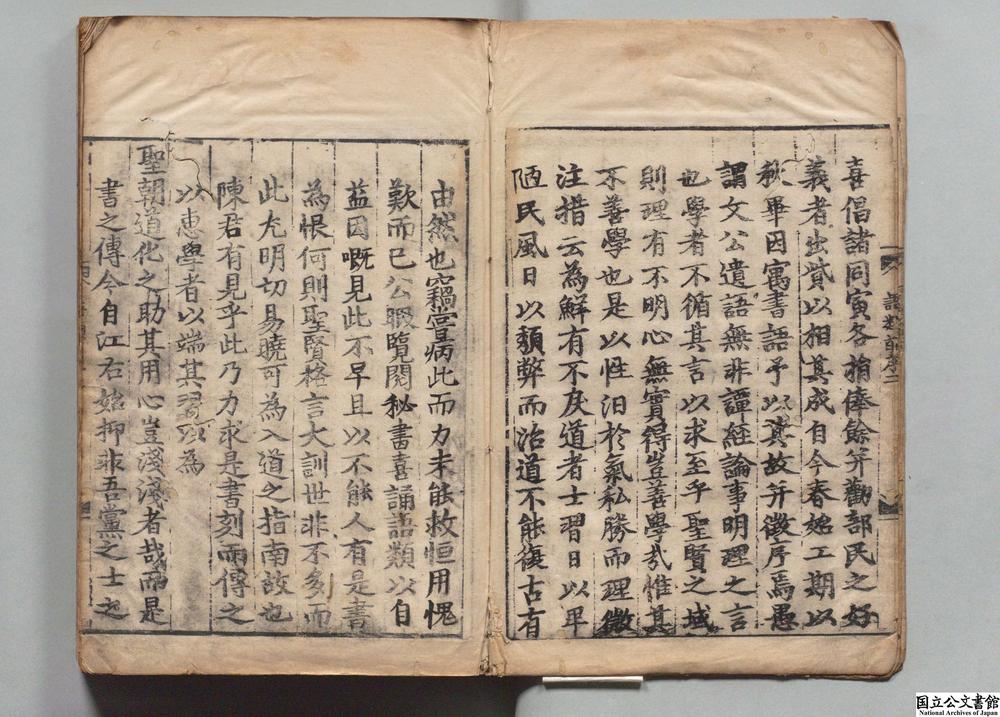 喜倡諸同寅各捐俸餘并勸部民之好
義者出貲以相其成自今春始工期以
秋畢因寓書語予以其故并徵序焉愚
謂文公遺語無非譚經論事明理之言
也學者不循其言以求至乎聖賢之域
則理有不明心無實得豈善學哉惟其
不善學也是以性汨於氣私勝而理微
注措云為鮮有不戾道者士習日以卑
陋民風日以頹弊而治道不能復古有
由然也竊嘗病此而力未能救恒用愧
歎而已公暇覽閱秘書喜誦語類以自
益因嘅見此不早且以不能人有是書
為恨何則聖賢格言大訓世非不多而
此尤明切易曉可為入道之指南故也
陳君有見乎此乃力求是書刻而傳之
以惠學者以端其習以為
聖朝道化之助其用心豈淺淺者哉而是
書之傳今自江右始抑非吾黨之士之
語類前序二
国立公文書館
National Archives of Japan